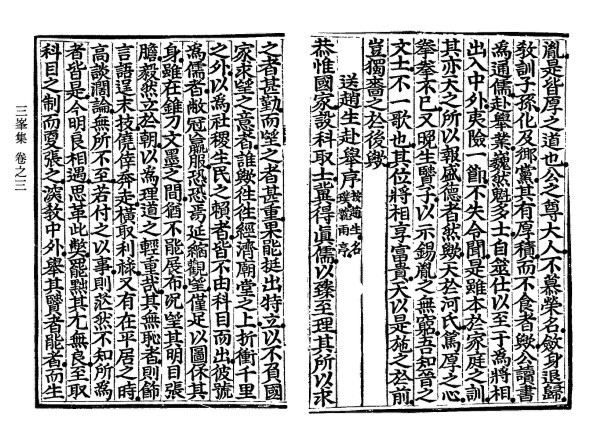 胤是皆厚之道也公之尊大人不慕榮名斂身退歸
敎訓子孫化及鄕黨其有厚積而不食者歟公讀書
爲通儒赴擧業巍然魁多士自筮仕以至于爲將相
出入中外夷險一節不失令聞是雖本於家庭之訓
其亦天之所以報盛德者然歟天於河氏篤厚之心
拳拳不已又晩生賢子以示錫胤之無窮吾知晉之
文士不一歌也其位將相享富貴天以是施之於前
豈獨嗇之於後歟
送趙生赴擧序 按趙生名璞號雨亭
恭惟國家設科取士冀得眞儒以臻至理其所以求
之者甚勤而望之者甚重果能挺出特立以不負國
家求望之意者誰歟往往經濟廟堂之上折衝千里
之外以爲社稷生民之賴者皆不由科目而出彼號
爲儒者敝冠羸服恐恐焉延縮觀望僅足以圖保其
身雖在錐刀文墨之間猶不能展布況望其明目張
膽毅然立於朝以爲理道之輕重哉其無恥者則飾
言語逞末技僥倖奔走橫取利祿又有在平居之時
高談闊論無所不至若付之以事則茫然不知所爲
者皆是今明良相遇思革此弊罷黜其尤無良至取
科目之制而更張之演敎中外擧其賢者能者而生
三峯集 卷之三